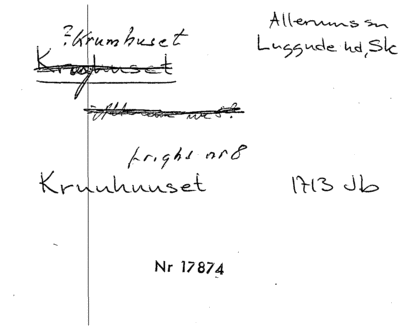 ?Krumhuset
Allerums sn
Luggude hd, Sk
Kroghuset
frighs nr 8
Krunhuuset
1713 Jb
Nr 17874